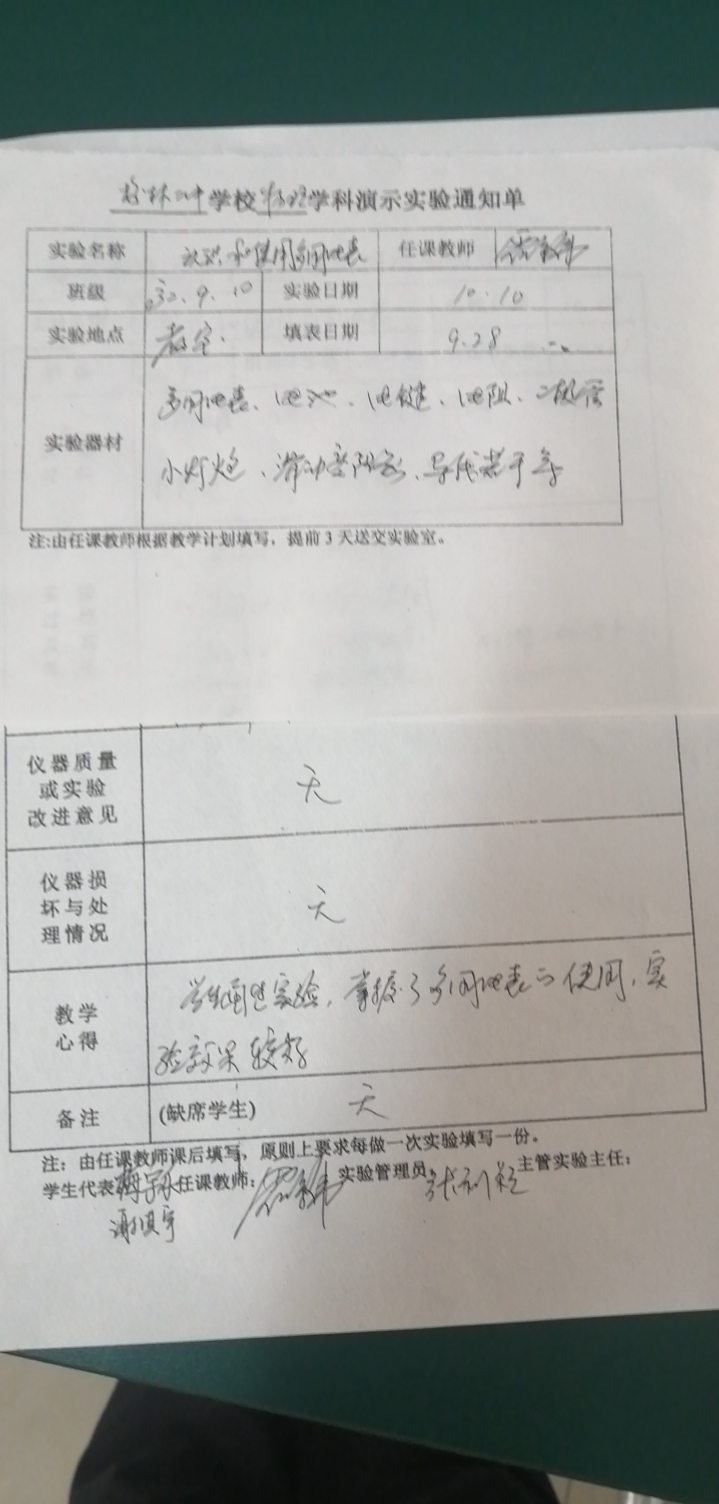 榆林四中学校物理学科演示实验通知单
实验名称 认识和使用多用电表 任课教师
班级 9.10 实验日期 10.10
实验地点 教室. 填表日期 9.28
实验器材 多用电表、电池、电键、电阻、二极管
小灯炮、滑动变阻器、导线若干等
注:由任课教师根据教学计划填写，提前3天送交实验室。
仪器质量
或实验
改进意见
无
仪器损
坏与处
理情况
无
教学
心得
学生通过实验，掌握了多用电表的使用，实
验效果较好
备注 (缺席学生) 无
注：由任课教师课后填写，原则上要求每做一次实验填写一份。
学生代表 任课教师： 实验管理员 主管实验主任：